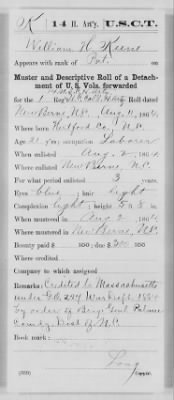 K | 14 H. Art'y. | U.S.C.T.
William H. Keene
Appears with rank of Pvt.
Muster and Descriptive Roll of a Detach-
ment of U. S. Vols. forwarded
for the 1 Reg't Roll dated
New Berne, N.C., Aug. 11, 1864
Where born Hertford Co., N.C.
Age 21 y'rs; occupation Laborer
When enlisted Aug. 2, 1864
Where enlisted New Berne, N.C.
For what period enlisted 3 years.
Eyes blue; hair light
Complexion light; height 5 ft. 8 in.
When mustered in Aug 2, 1864
Where mustered in New Berne, N.C.
Bounty paid $ 100; due $ 100
Where credited
Company to which assigned
Remarks: Credited to Massachusetts
under G.O. 227 War Dept. 1864
by order of Brig. Genl. Palmer
Comdg. Dist of N.C.
Book mark:
Long
Copyist.